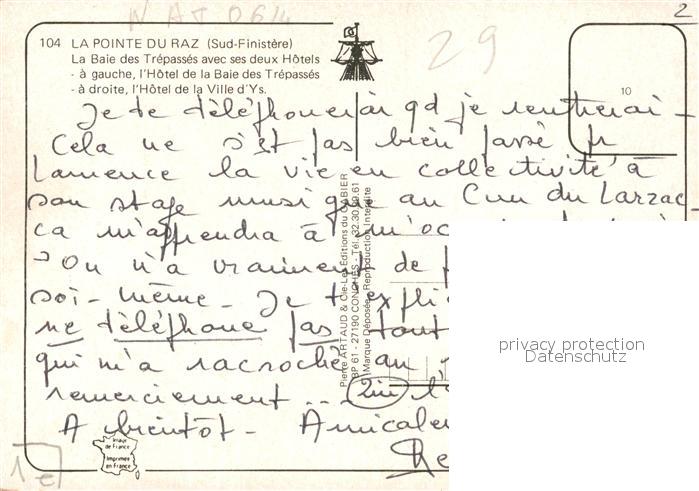 NAT 06/4
2
29
104 LA POINTE DU RAZ (Sud-Finistère)
La Baie des Trépassés avec ses deux Hôtels
- à gauche, l'Hôtel de la Baie des Trépassés
- à droite, l'Hôtel de la Ville d'Ys.
10
Je te téléphonerai qd je rentrerai -
Cela ne s'est pas bien passé pr
Laurence la vie en collectivité à
son stage musique au Cun du Larzac
ça m'apprendra à m'oc
On n'a vraiment de
soi-même - Je t'expli
ne téléphone pas tout
qui m'a racroché au
remerciement ...
A bientôt - Amicale
Re
Pierre ARTAUD & Cie - Les Editions du GABIER
BP 61 - 27190 CONCHES - Tél. 32.30.
Marque Déposée - Reproduction Interdite
privacy protection
Datenschutz
Image
de France
Imprimée
en France
1e